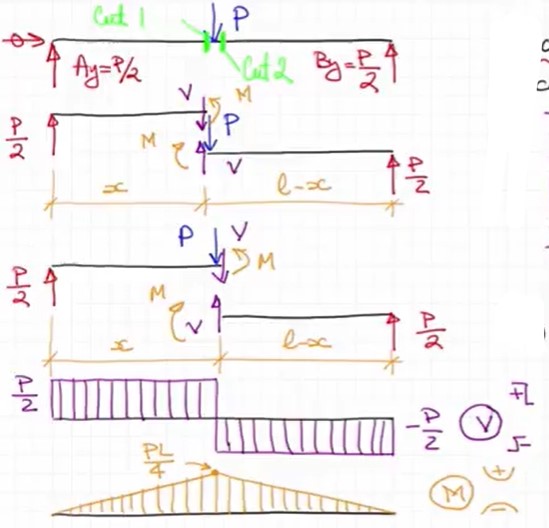 Cut 1 P
Ay=P/2 Cut 2 By=P/2
V M
P/2 M P
V P/2
x l-x
P V
P/2 M
M V P/2
x l-x
P/2 -P/2 V
PL/4
M